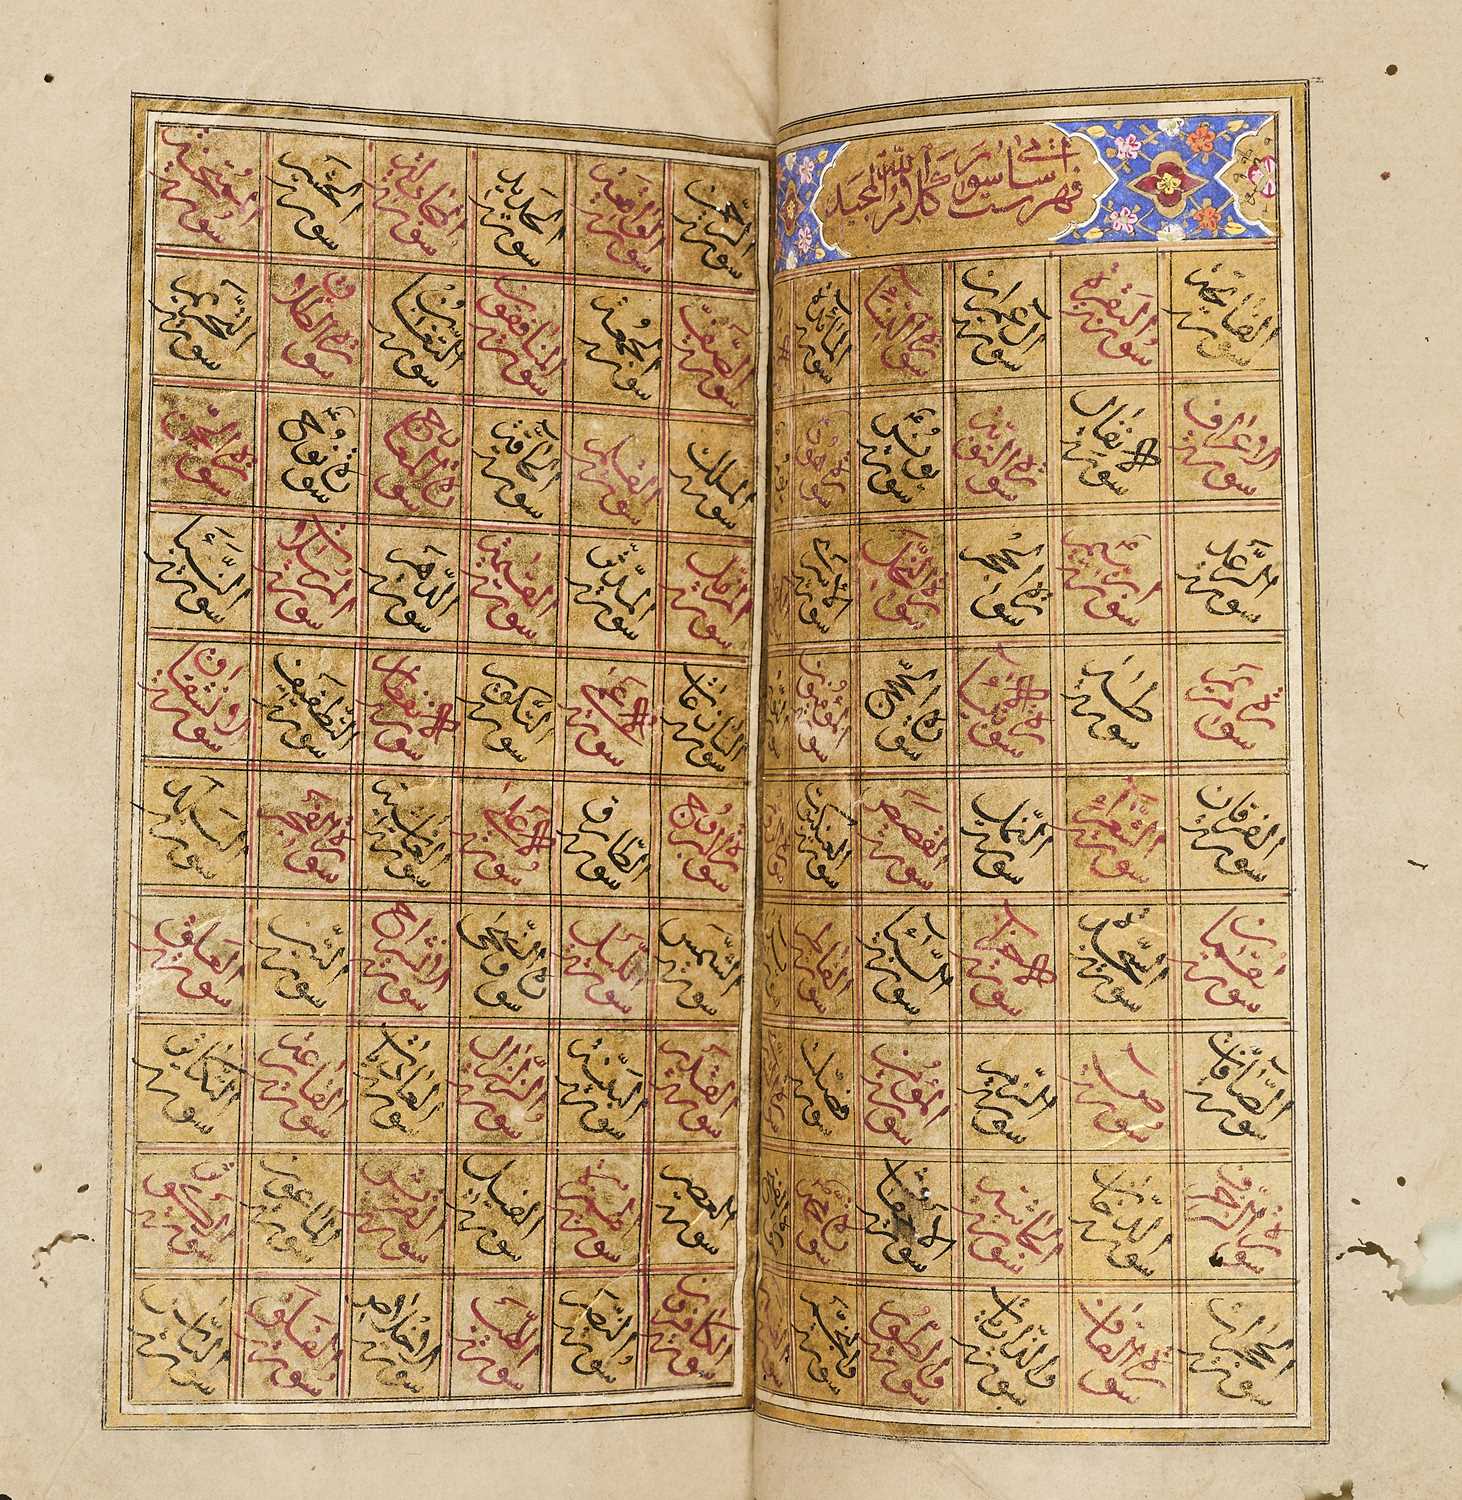 فهرست اسامی سور کلام الله المجید
سورة الفاتحة
سورة البقرة
سورة آل عمران
سورة النساء
سورة المائدة
سورة الاعراف
سورة الانفال
سورة التوبة
سورة يونس
سورة هود
سورة الرعد
سورة ابرهيم
سورة الحجر
سورة النحل
سورة مريم
سورة طه
سورة الانبياء
سورة الحج
سورة المؤمنون
سورة الفرقان
سورة الشعراء
سورة النمل
سورة القصص
سورة العنكبوت
سورة لقمان
سورة السجدة
سورة الاحزاب
سورة السبا
سورة الفاطر
سورة الصافات
سورة ص
سورة الزمر
سورة المؤمن
سورة فصلت
سورة الزخرف
سورة الدخان
سورة الجاثية
سورة الاحقاف
سورة محمد
سورة الحجرات
سورة القاف
سورة والذاريات
سورة والطور
سورة والنجم
سورة الرحمن
سورة الواقعة
سورة الحديد
سورة الحشر
سورة الممتحنة
سورة الصف
سورة الجمعة
سورة المنافقون
سورة التغابن
سورة الطلاق
سورة التحريم
سورة الملك
سورة القلم
سورة الحاقة
سورة المعارج
سورة نوح
سورة الجن
سورة المزمل
سورة المدثر
سورة القيمة
سورة الدهر
سورة المرسلات
سورة النبأ
سورة النازعات
سورة الاعمى
سورة التكوير
سورة الانفطار
سورة التطفيف
سورة الانشقاق
سورة البروج
سورة الطارق
سورة الاعلى
سورة الغاشية
سورة الفجر
سورة البلد
سورة الشمس
سورة الليل
سورة والضحى
سورة الانشراح
سورة التين
سورة العلق
سورة القدر
سورة البينة
سورة الزلزال
سورة العاديات
سورة القارعة
سورة التكاثر
سورة العصر
سورة همزة
سورة الفيل
سورة القريش
سورة الماعون
سورة الكوثر
سورة الكافرون
سورة النصر
سورة الاخلاص
سورة الفلق
سورة الناس